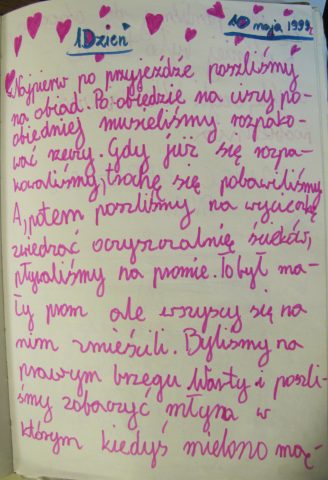 1 Dzień
10 maja 1999r
Najpierw po przyjeździe poszliśmy
na obiad. Po obiedzie na ciszy po-
obiedniej musieliśmy rozpako-
wać rzeczy. Gdy już się rozpa-
kowaliśmy, trochę się pobawiliśmy
A, potem poszliśmy na wycieczkę
zwiedzać oczyszczalnię ścieków,
pływaliśmy na promie. To był ma-
ły prom ale wszyscy się na
nim zmieścili. Byliśmy na
prawym brzegu Warty i poszli-
śmy zobaczyć młyna w
którym kiedyś mielono mą-